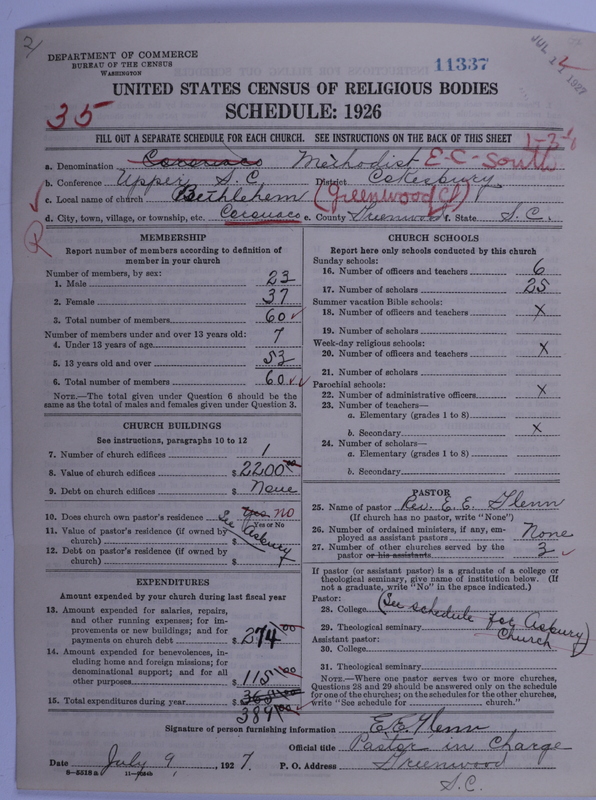 2
DEPARTMENT OF COMMERCE
BUREAU OF THE CENSUS
WASHINGTON
11337
JUL 14 1927
UNITED STATES CENSUS OF RELIGIOUS BODIES
35
SCHEDULE: 1926
FILL OUT A SEPARATE SCHEDULE FOR EACH CHURCH. SEE INSTRUCTIONS ON THE BACK OF THIS SHEET
a. Denomination Coronaco Methodist E-C-South
b. Conference Upper S.C. District Cokesbury
c. Local name of church Bethlehem (Greenwood Ct)
d. City, town, village, or township, etc. Coronaco e. County Greenwood f. State S.C.
R
MEMBERSHIP
Report number of members according to definition of
member in your church
Number of members, by sex:
1. Male 23
2. Female 37
3. Total number of members 60
Number of members under and over 13 years old:
4. Under 13 years of age 7
5. 13 years old and over 53
6. Total number of members 60
NOTE.—The total given under Question 6 should be the
same as the total of males and females given under Question 3.
CHURCH BUILDINGS
See instructions, paragraphs 10 to 12
7. Number of church edifices 1
8. Value of church edifices $2200
9. Debt on church edifices $ None
10. Does church own pastor's residence Yes NO
Yes or No
11. Value of pastor's residence (if owned by
church) $ See Asbury
12. Debt on pastor's residence (if owned by
church) $
EXPENDITURES
Amount expended by your church during last fiscal year
13. Amount expended for salaries, repairs,
and other running expenses; for im-
provements or new buildings; and for
payments on church debt $274.00
14. Amount expended for benevolences, in-
cluding home and foreign missions; for
denominational support; and for all
other purposes $115.00
15. Total expenditures during year $
389.00
CHURCH SCHOOLS
Report here only schools conducted by this church
Sunday schools:
16. Number of officers and teachers 6
17. Number of scholars 25
Summer vacation Bible schools:
18. Number of officers and teachers X
19. Number of scholars
Week-day religious schools:
20. Number of officers and teachers X
21. Number of scholars
Parochial schools:
22. Number of administrative officers X
23. Number of teachers—
a. Elementary (grades 1 to 8)
b. Secondary X
24. Number of scholars—
a. Elementary (grades 1 to 8)
b. Secondary
PASTOR
25. Name of pastor Rev. E. E. Glenn
(If church has no pastor, write "None")
26. Number of ordained ministers, if any, em-
ployed as assistant pastors None
27. Number of other churches served by the
pastor or his assistants 3
If pastor (or assistant pastor) is a graduate of a college or
theological seminary, give name of institution below. (If
not a graduate, write "No" in the space indicated.)
Pastor:
28. College (See schedule for Asbury
29. Theological seminary Church)
Assistant pastor:
30. College
31. Theological seminary
NOTE.—Where one pastor serves two or more churches,
Questions 28 and 29 should be answered only on the schedule
for one of the churches; on the schedules for the other churches,
write "See schedule for church."
Signature of person furnishing information E. E. Glenn
Official title Pastor in Charge
Date July 9, 1927. P. O. Address Greenwood
S.C.